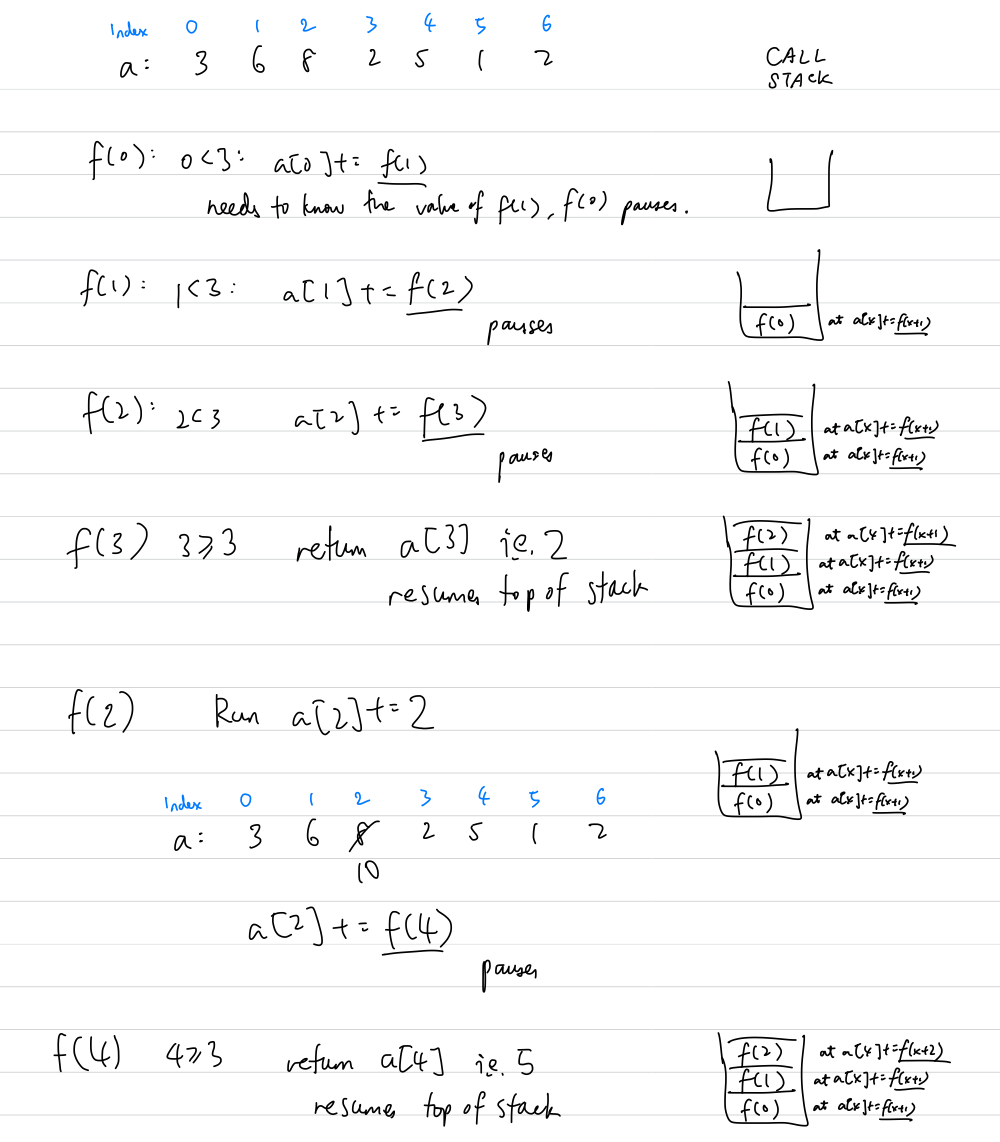 Index 0 1 2 3 4 5 6
a: 3 6 8 2 5 1 2
CALL
STACK
f(0): 0<3: a[0]+= f(1)
needs to know the value of f(1), f(0) pauses.
f(1): 1<3: a[1]+=f(2)
pauses
f(0) at a[x]+=f(x+1)
f(2): 2<3 a[2] += f(3)
pauses
f(1) at a[x]+=f(x+1)
f(0) at a[x]+=f(x+1)
f(3) 3⩾3 return a[3] ie. 2
resumes top of stack
f(2) at a[x]+=f(x+1)
f(1) at a[x]+=f(x+1)
f(0) at a[x]+=f(x+1)
f(2) Run a[2]+=2
f(1) at a[x]+=f(x+1)
f(0) at a[x]+=f(x+1)
Index 0 1 2 3 4 5 6
a: 3 6 8 2 5 1 2
10
a[2]+= f(4)
pauses
f(4) 4⩾3 return a[4] ie. 5
resumes top of stack
f(2) at a[x]+=f(x+2)
f(1) at a[x]+=f(x+1)
f(0) at a[x]+=f(x+1)